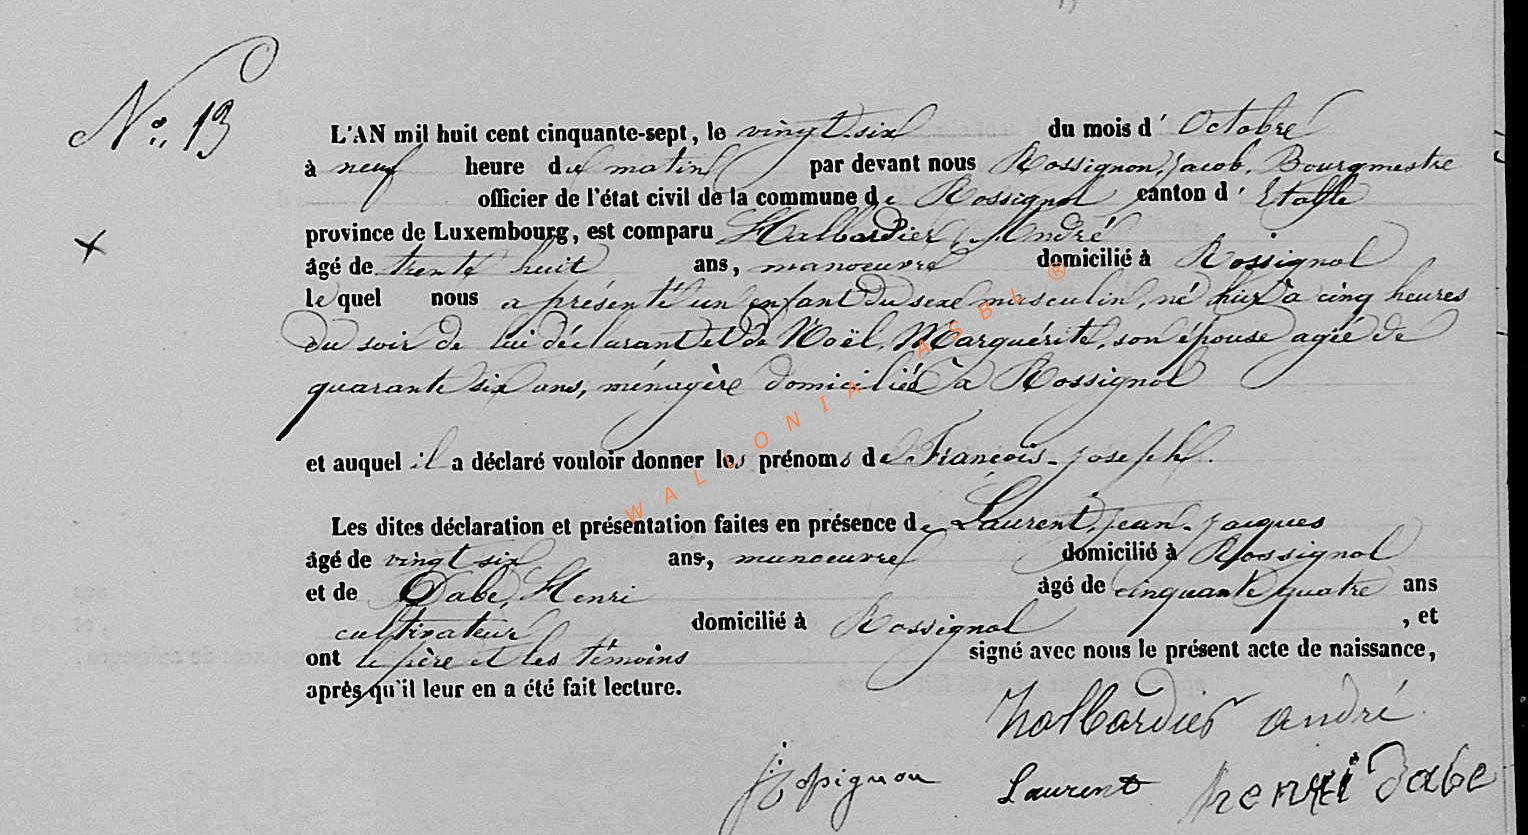 N° 13
L'AN mil huit cent cinquante-sept, le vingt six du mois d' Octobre
à neuf heure du matin par devant nous Rossignon, Jacob, Bourgmestre
officier de l'état civil de la commune de Rossignol canton d' Etalle
province de Luxembourg, est comparu Halbardier, André
âgé de trente huit ans, manoeuvre domicilié à Rossignol
le quel nous a présenté un enfant du sexe masculin, né hier à cinq heures
du soir de lui déclarant et de Noël, Marguérite, son épouse agée de
quarante six ans, ménagère domiciliés à Rossignol
et auquel il a déclaré vouloir donner les prénoms de François-Joseph.
Les dites déclaration et présentation faites en présence de Laurent, Jean-Jacques
âgé de vingt six ans, manoeuvre domicilié à Rossignol
et de Dabe, Henri âgé de cinquante quatre ans
cultivateur domicilié à Rossignol , et
ont le père et les témoins signé avec nous le présent acte de naissance,
après qu'il leur en a été fait lecture.
halbardier andré
J: Rossignon Laurent henri dabe
WALLONIA ASBL ®